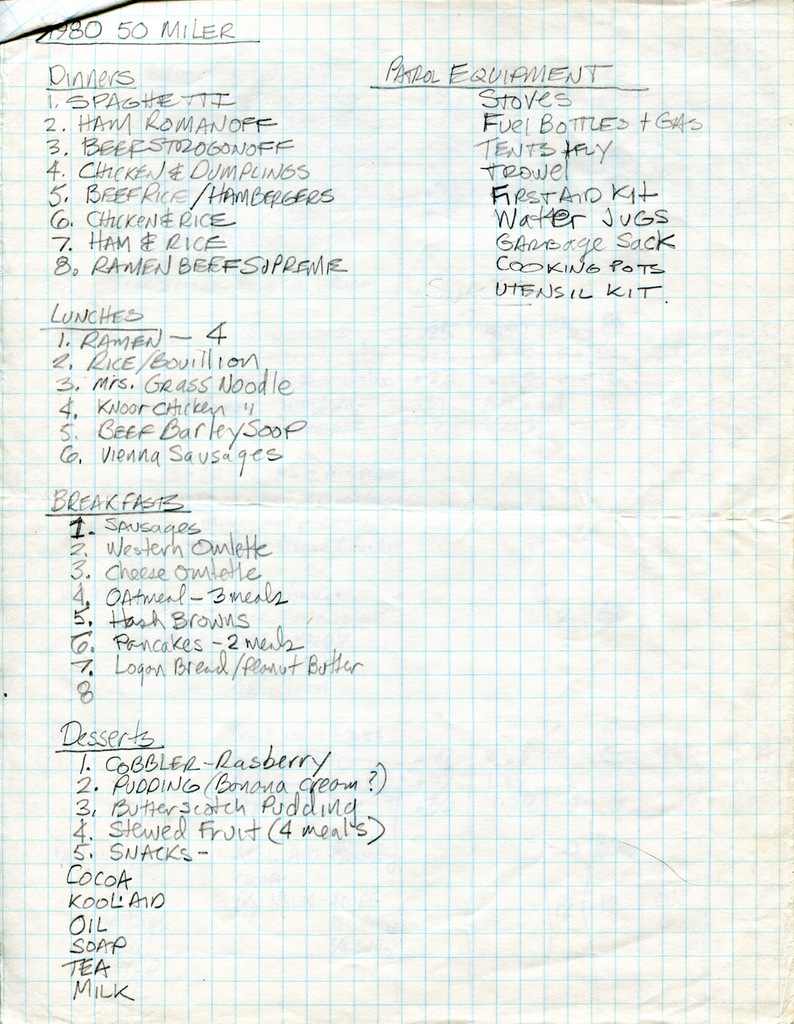 1980 50 MILER
Dinners
1. SPAGHETTI
2. HAM ROMANOFF
3. BEEF STROGONOFF
4. CHICKEN & DUMPLINGS
5. BEEF RICE / HAMBERGERS
6. CHICKEN & RICE
7. HAM & RICE
8. RAMEN BEEF SUPREME
LUNCHES
1. RAMEN - 4
2. RICE/Bouillion
3. Mrs. GRASS Noodle
4. KNOOR CHICKEN "
5. BEEF Barley SOOP
6. Vienna Sausages
BREAKFASTS
1. SAUSAGES
2. Western Omlette
3. Cheese Omlette
4. OATmeal - 3 meals
5. Hash Browns
6. Pancakes - 2 meals
7. Logan Bread/Peanut Butter
8
Desserts
1. COBBLER - Rasberry
2. PUDDING (Banana cream?)
3. Butterscotch Pudding
4. Stewed Fruit (4 meals)
5. SNACKS -
COCOA
KOOL-AID
OIL
SOAP
TEA
MILK
PATROL EQUIPMENT
Stoves
Fuel BOTTLES + GAS
TENTS + FLY
Trowel
FIRST AID Kit
Watter JUGS
GARBage Sack
COOKING POTS
UTENSIL KIT.